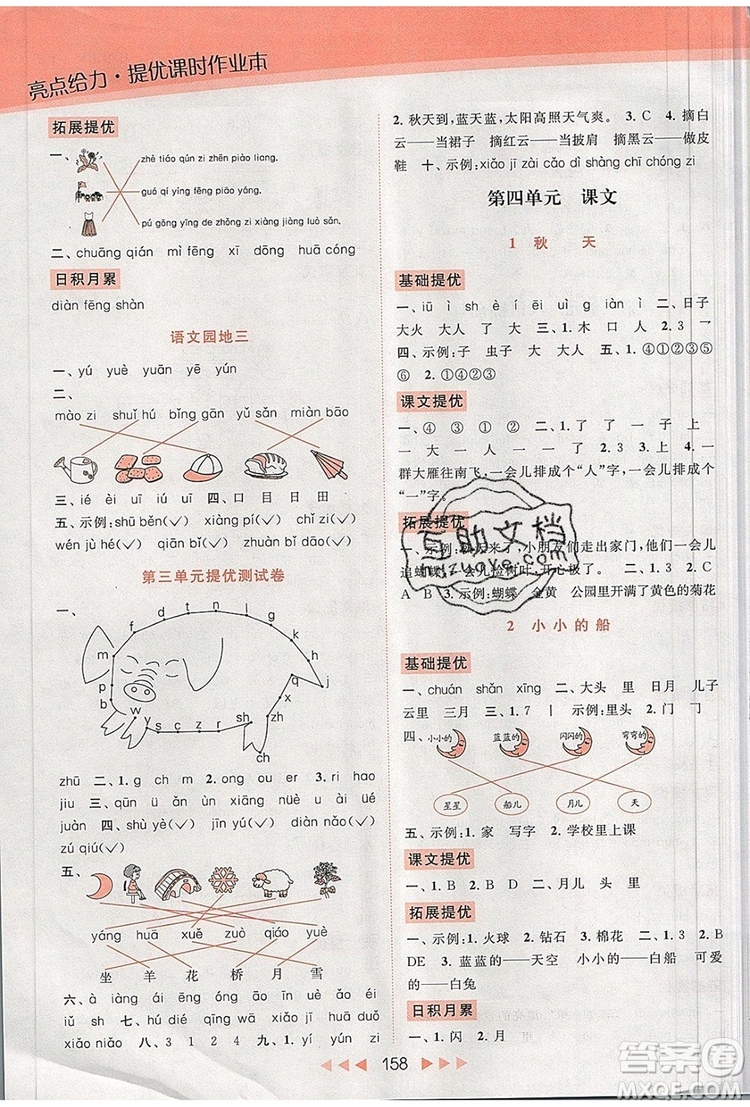 亮点给力·提优课时作业本
拓展提优
一、
zhè tiáo qún zi zhēn piào liang.
guó qí yíng fēng piāo yáng.
pú gōng yīng de zhǒng zi xiàng jiàng luò sǎn.
二、chuāng qián mì fēng xī dōng huā cóng
日积月累
diàn fēng shàn
语文园地三
一、yú yuè yuān yē yuē
二、
mào zi shuǐ hú bǐng gān yǔ sǎn miàn bāo
三、ié èi uī iú uí 四、口 目 日 田
五、示例:shū běn(✓) xiàng pí(✓) chǐ zi(✓)
wén jù hé(✓) qiān bǐ(✓) juǎn bǐ dāo(✓)
第三单元提优测试卷
一、
m f d t n l g k h j q x
b p w y s c z r zh sh ch
zhū 二、1. g ong ou er 2. f h r
jiu 三、qūn ü ān ùn xiāng nüè iu üé
yuán 四、shù yè(✓) jīn yú(✓) diàn nǎo(✓)
zú qiú(✓)
五、
yáng huā xuě zuò qiáo yuè
坐 羊 花 桥 月 雪
六、à iàng āi ēng óng án iú ēn ài
āng ài 七、dié qīng wā mǎ yǐ
xiǎo niǎo 八、3 1 4 2 九、1. yí yún zi
2. 秋天到,蓝天蓝,太阳高照天气爽。 3. C 4. 摘白
云——当裙子 摘红云——当披肩 摘黑云——做皮
鞋 十、示例:xiǎo jī zài cǎo dì shàng chī chóng zi
第四单元 课文
1 秋 天
基础提优
一、iū ì shè piàn dēi uì g iàn 二、日子
大火 大人 了 子 三、1. 木 口 人 2. 3 ㇖
四、示例:子 虫子 大 大人 五、1. ①②③⑤
⑥ 2. ①④②③
课文提优
一、④ ③ ① ② 二、1. 了 了 一 子 上
一 大 一 人 一 一 2. 3 三、1. 3 4 2. 一
群大雁往南飞,一会儿排成个“人”字,一会儿排成个
“一”字。
拓展提优
一、示例:秋天来了,小朋友们走出家门,他们一会儿
追蝴蝶,一会儿捡树叶,开心极了。 二、1. 3 2. C
A B 3. 示例:蝴蝶 金黄 公园里开满了黄色的菊花
2 小小的船
基础提优
一、chuán shǎn xīng 二、大头 里 日月 儿子
云里 三月 三、1. 7 丨 示例:里头 2. 门 ㇆
四、小小的 蓝蓝的 闪闪的 弯弯的
星星 船儿 月儿 天
五、示例:1. 家 写字 2. 学校里上课
课文提优
一、1. B 2. B D 二、月儿 头 里
拓展提优
一、示例:1. 火球 2. 钻石 3. 棉花 二、1. 3 2. B
DE 3. 蓝蓝的——天空 小小的——白船 可爱
的——白兔
日积月累
一、1. 闪 2. 月
158
互助文档
hjzuoye.com
答案圈
MXQE.COM